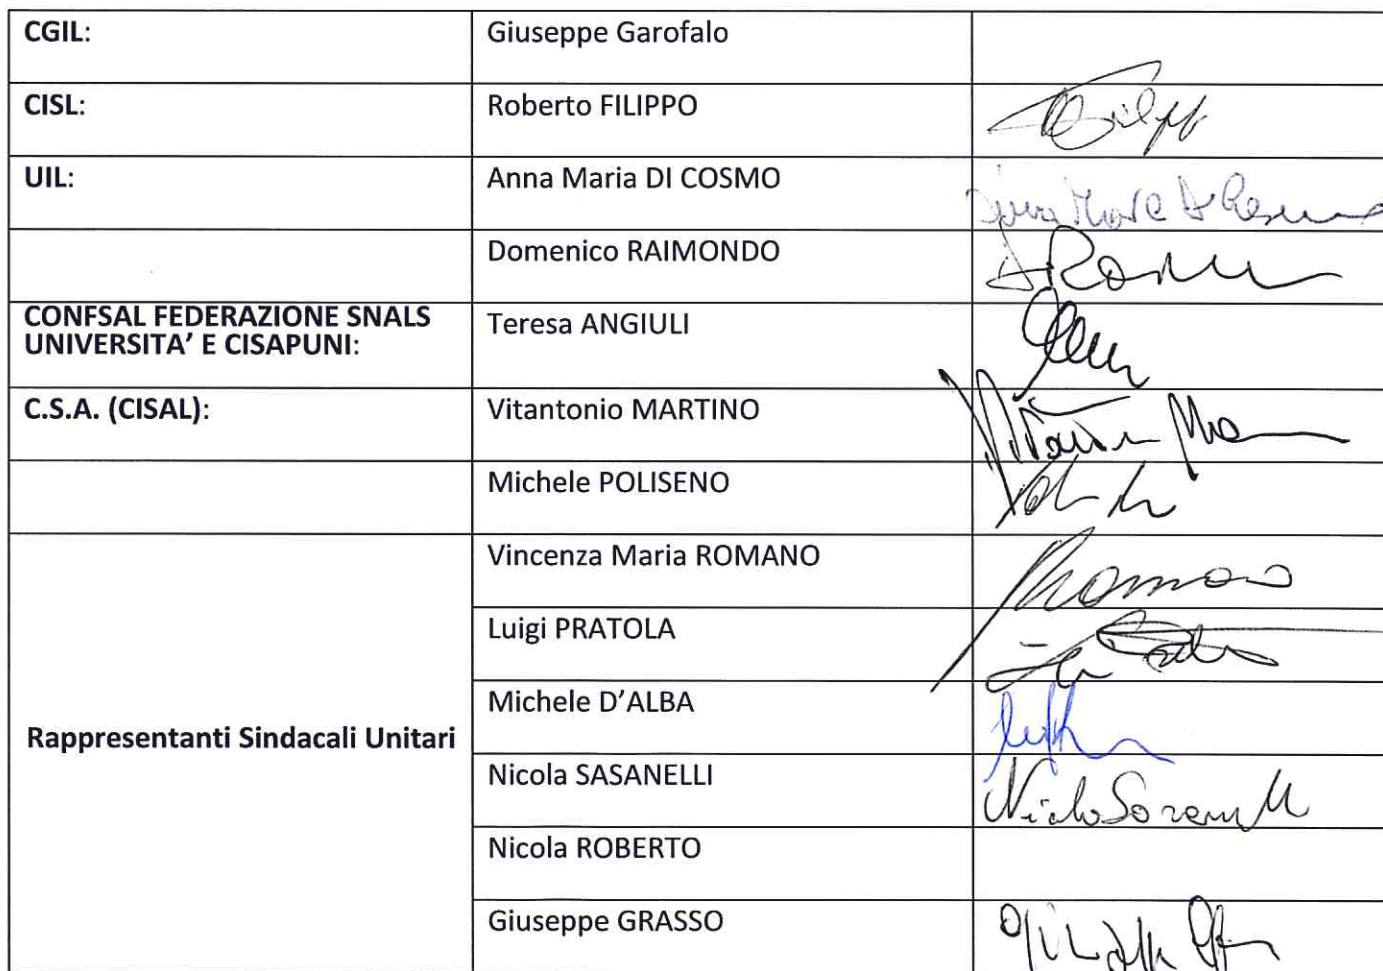 CGIL: Giuseppe Garofalo
CISL: Roberto FILIPPO
UIL: Anna Maria DI COSMO
Domenico RAIMONDO
CONFSAL FEDERAZIONE SNALS
UNIVERSITA’ E CISAPUNI: Teresa ANGIULI
C.S.A. (CISAL): Vitantonio MARTINO
Michele POLISENO
Rappresentanti Sindacali Unitari
Vincenza Maria ROMANO
Luigi PRATOLA
Michele D’ALBA
Nicola SASANELLI
Nicola ROBERTO
Giuseppe GRASSO